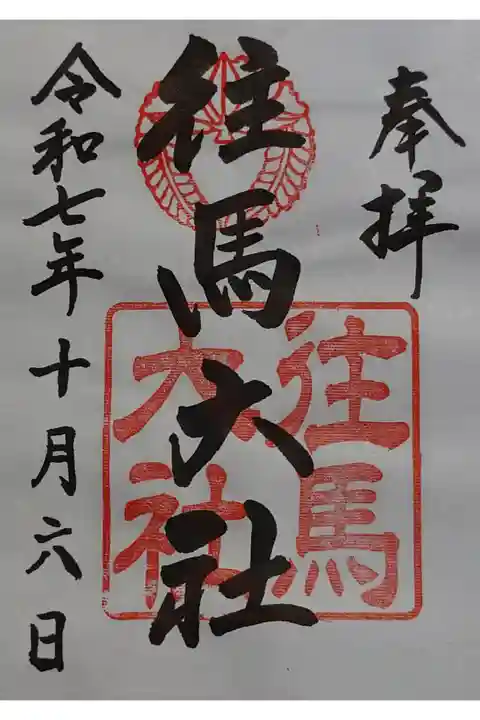 奉拝
往馬大社
往馬
大社
令和七年十月六日